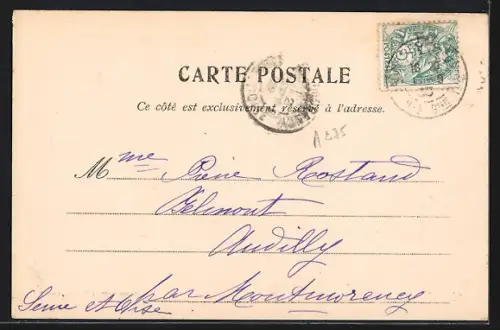 CARTE POSTALE
Ce côté est exclusivement réservé à l'adresse.
A275
Mme Pierre Rostand
Belmont
Andilly
par Montmorency
Seine et Oise